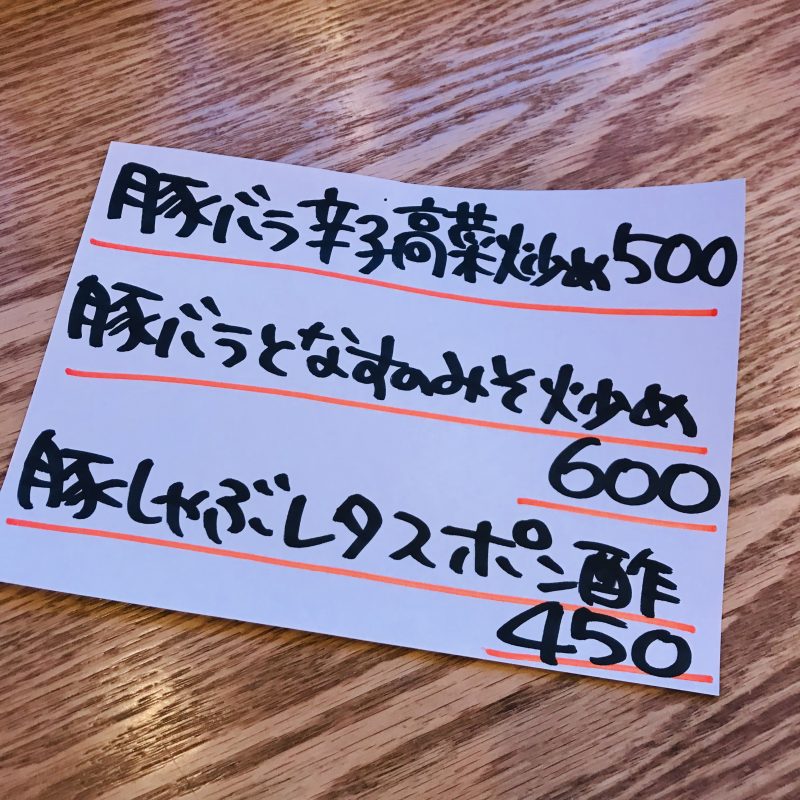 豚バラ辛子高菜炒め500
豚バラとなすのみそ炒め
600
豚しゃぶレタスポン酢
450